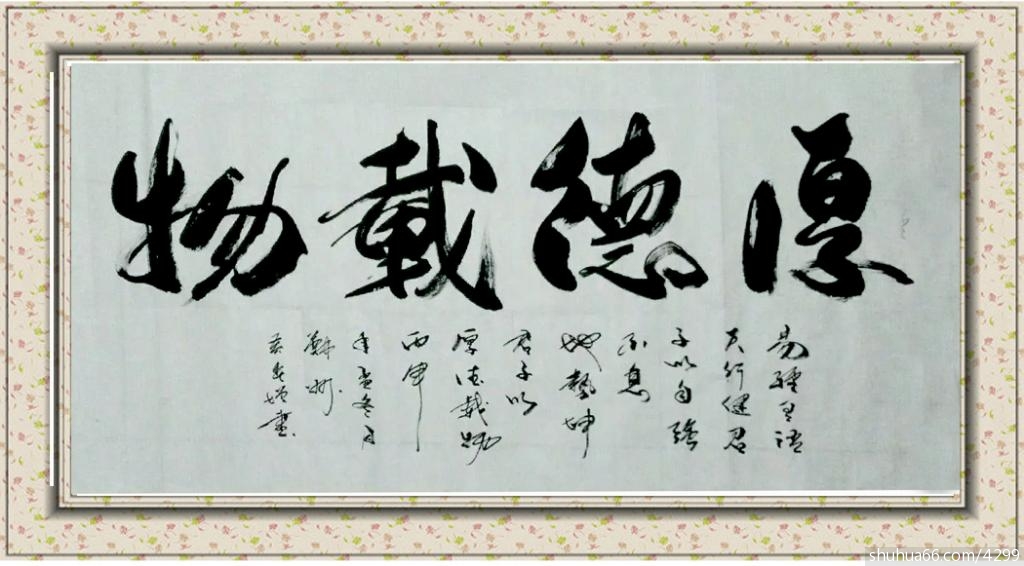 厚德載物
易經
天行健君
子以自強
不息
地勢坤
君子以
厚德載物
丙申
年孟冬月
州
書
shuhua66.com/4299